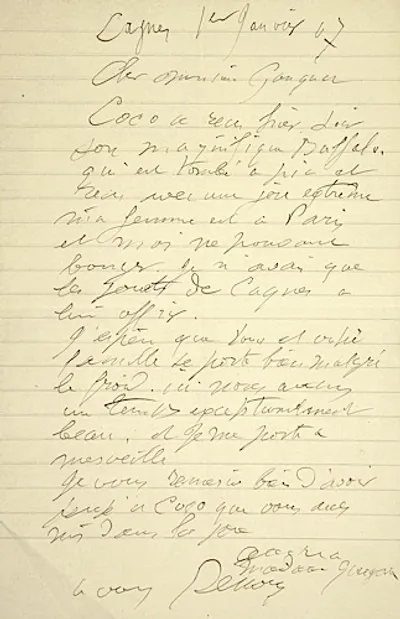 Cagnes 1er Janvier 07
Cher monsieur Gangnat
Coco a reçu hier soir
son magnifique Buffalo,
qui est tombé à pic et
reçu avec une joie extrême
ma femme est à Paris
et moi ne pouvant
bouger je n'avais que
les jouets de Cagnes a
lui offrir.
J'espère que vous et votre
famille se porte bien malgré
le froid. ici nous avons
un temps exceptionnellement
beau, et je me porte a
merveille
Je vous remercie bien d'avoir
à Coco que vous avez
mis dans la joie
madame
a vous Renoir